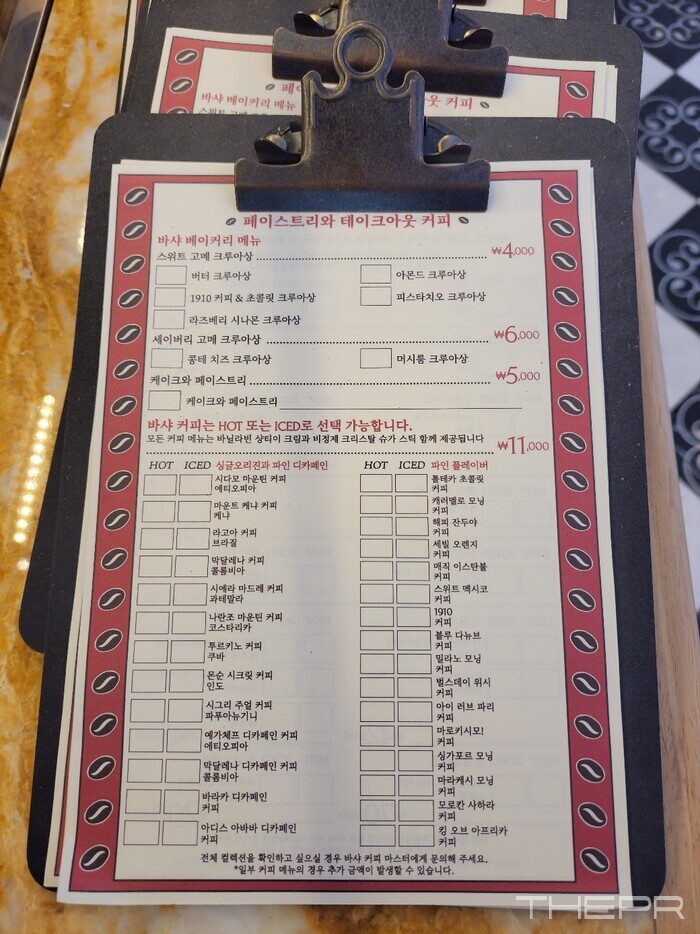 바샤 베이커리 메뉴
웃 커피
페이스트리와 테이크아웃 커피
바샤 베이커리 메뉴
스위트 고메 크루아상 ₩4,000
버터 크루아상 아몬드 크루아상
1910 커피 & 초콜릿 크루아상 피스타치오 크루아상
라즈베리 시나몬 크루아상
세이버리 고메 크루아상 ₩6,000
콩테 치즈 크루아상 머시룸 크루아상
케이크와 페이스트리 ₩5,000
케이크와 페이스트리
바샤 커피는 HOT 또는 ICED로 선택 가능합니다.
모든 커피 메뉴는 바닐라빈 샹티이 크림과 비정제 크리스탈 슈가 스틱 함께 제공됩니다
₩11,000
HOT ICED 싱글오리진과 파인 디카페인
시다모 마운틴 커피
에티오피아
마운트 케냐 커피
케냐
라고아 커피
브라질
막달레나 커피
콜롬비아
시에라 마드레 커피
과테말라
나란조 마운틴 커피
코스타리카
투르키노 커피
쿠바
몬순 시크릿 커피
인도
시그리 주얼 커피
파푸아뉴기니
예가체프 디카페인 커피
에티오피아
막달레나 디카페인 커피
콜롬비아
바라카 디카페인
커피
아디스 아바바 디카페인
커피
HOT ICED 파인 플레이버
톨테카 초콜릿
커피
캐러멜로 모닝
커피
해피 잔두야
커피
세빌 오렌지
커피
매직 이스탄불
커피
스위트 멕시코
커피
1910
커피
블루 다뉴브
커피
밀라노 모닝
커피
벌스데이 위시
커피
아이 러브 파리
커피
마로키시모!
커피
싱가포르 모닝
커피
마라케시 모닝
커피
모로칸 사하라
커피
킹 오브 아프리카
커피
전체 컬렉션을 확인하고 싶으실 경우 바샤 커피 마스터에게 문의해 주세요.
*일부 커피 메뉴의 경우 추가 금액이 발생할 수 있습니다.
THEPR